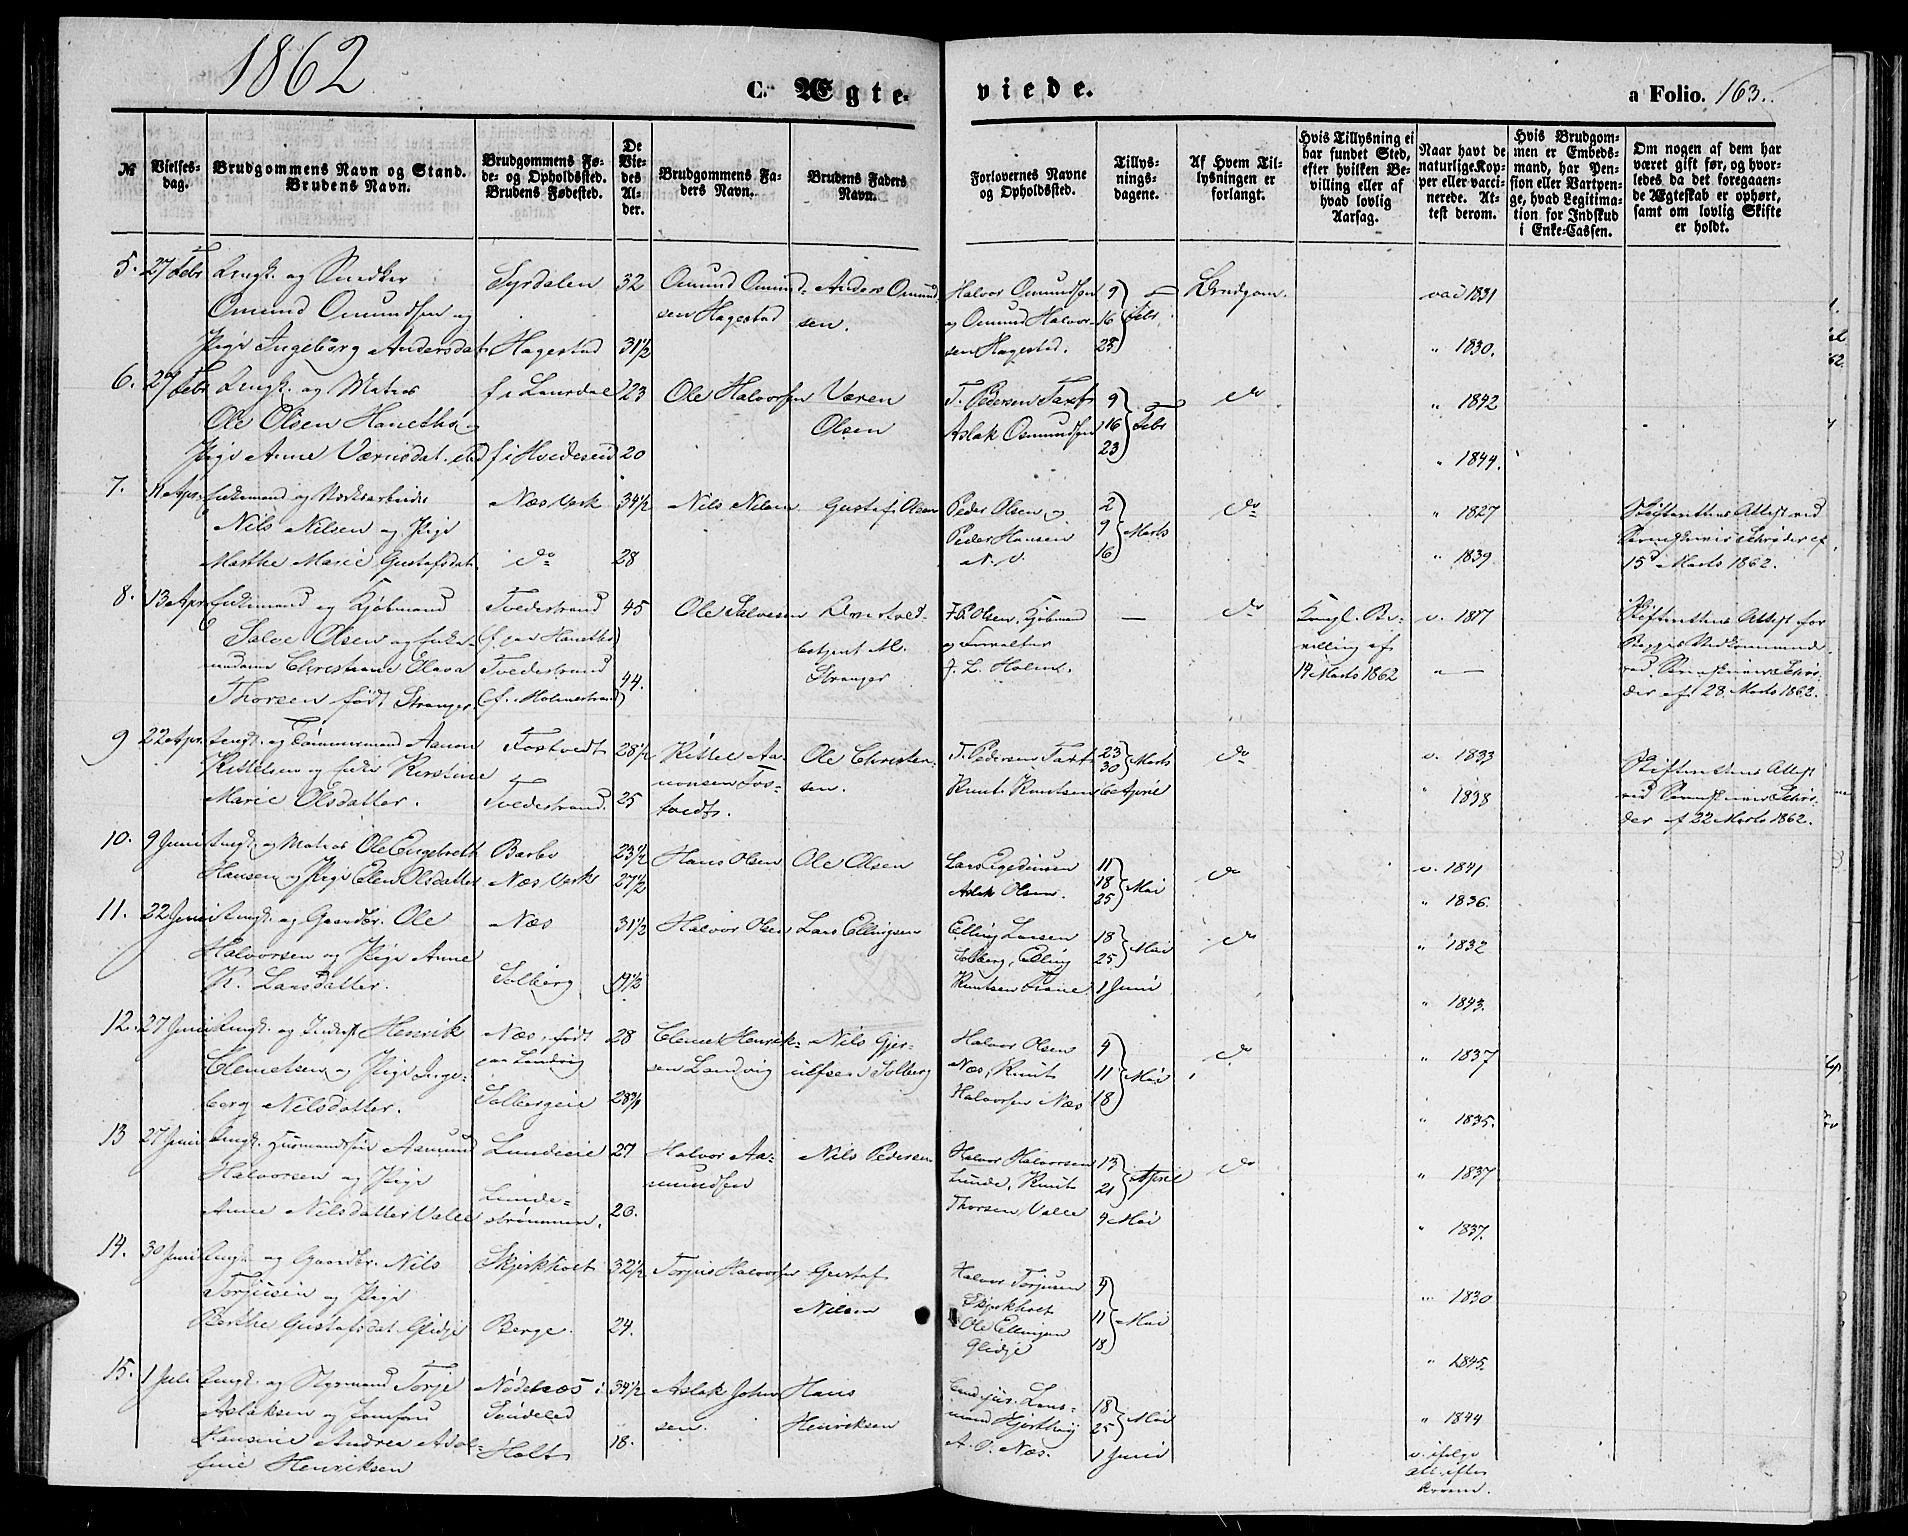 1862
C. Ægte-
viede.
a Folio. 163.
№
Vielses-
dag.
Brudgommens Navn og Stand.
Brudens Navn.
Brudgommens Fø-
de- og Opholdssted.
Brudens Fødested.
De
Vie-
des
Al-
der.
Brudgommens Fa-
ders Navn.
Brudens Faders
Navn.
Forlovernes Navne
og Opholdssted.
Tillys-
nings-
dagene.
Af Hvem Til-
lysningen er
forlangt.
Hvis Tillysning ei
har fundet Sted,
efter hvilken Be-
villing eller af
hvad lovlig
Aarsag.
Naar havt de
naturlige Kop-
per eller vacci-
nerede. At-
test derom.
Hvis Brudgom-
men er Embeds-
mand, har Pen-
sion eller Vartpen-
ge, hvad Legitima-
tion for Indskud
i Enke-Cassen.
Om nogen af dem har
været gift før, og hvor-
ledes da det foregaaen-
de Ægteskab er ophørt,
samt om lovlig Skifte
er holdt.
5. 27 Febr Ungk. og Snedker
Omund Omundsen og
Pige Ingeborg Andersdat.
Syrdalen
Hagestad
32
31 1/2
Omund Omund-
sen Hagestad
Anders Omund-
sen.
Halvor Omundsen
og Omund Halvor-
sen Hagestad.
9
16 Febr
23
Brudgom.
vac 1831
" 1830.
6. 27 Febr Ungk. og Matros
Ole Olsen Haneths
Pige Anne Værnsdat.
f. i Laurdal
f. i Hvideseid
23
20
Ole Halvorsen
Væren
Olsen
T. Pedersen Taxt
Aslak Osmundsen
9
16 Febr
23
do
" 1842
" 1844.
7. 11 Apr. Enkemand og Værksarbeider
Nils Nilsen og Pige
Marthe Marie Gustafsdat.
Næs Værk
do
34 1/2
28
Nils Nilsen
Gustaf Olsen
Peder Olsen og
Peder Hansen
N. V.
2
9 Marts
16
do
" 1827
" 1839
Skifterettens Attest ved
Sorenskriver Schrøder af
15d Marts 1862.
8. 13 Apr. Enkemand og Kjøbmand
Salve Olsen og Enke-
madame Christiane Olava
Thorsen født Stranger
Tvedestrand
(f. paa Haneths)
Tvedestrand
(f. i Holmestrand)
45
44.
Ole Salvesen
betjent M.
Stranger
F. B. Olsen, Kjøbmand
og Forvalter
J. L. Holm.
—
do
Kongl. Be-
villing af
14 Marts 1862
v. 1817
" —
Skifterettens Attest for
Begges Vedkommende
ved Sorenskriver Schrø-
der af 28. Marts 1862.
9 22 Apr. Ungk. og Tømmermand Aanon
Kittelsen og Enke Kirstine
Marie Olsdatter.
Fostvedt
Tvedestrand.
28 1/2
25
Kittel Aa-
nonsen Fos-
tvedt.
Ole Christen-
sen.
T. Pedersen Taxt
Knut Knutsen
23
30 Marts
6 April
do
v. 1833
" 1838
Skifterettens Attest
ved Sorenskriver Schrø-
der af 22 Marts 1862.
10. 9 Juni Ungk. og Matros Ole Engebreth
Hansen og Pige Elen Olsdatter
Barbo
Næs Værk
23 1/2
27 1/2
Hans Olsen
Ole Olsen
Lars Egedinsen
Aslak Olsen.
11
18 Mai
25
do
v. 1841
" 1836.
11. 22 Juni Ungk. og Gaardbr. Ole
Halvorsen og Pige Anne
K. Larsdatter.
Næs
Solberg
31 1/2
19 1/2
Halvor Olsen
Lars Ellingsen
Elling Larsen
Solberg, Elling
Knutsen
18
25 Mai
1 Juni
do
" 1832
" 1843.
12. 27 Juni Ungk. og Inderst Henrik
Clemetsen og Pige Inge-
borg Nilsdatter.
Næs, født
paa Landvig
Solbergeie
28
28 3/4
Clemet Henrik-
sen Landvig
Nils Gjer-
ulfsen Solberg
Halvor Olsen
Næs, Knut
Halvorsen Næs
4
11 Mai
18
do
" 1837
" 1835.
13 27 Juni Ungk. Husmandssøn Aamund
Halvorsen og Pige
Anne Nilsdatter Valle
Lundeeie
Lunde-
strømmen.
27
26.
Halvor Aa-
mundsen
Nils Pedersen
Halvor Halvorsen
Lunde, Knut
Thorsen, Valle
13
21 April
4 Mai
do
" 1837
" 1837.
14. 30 Juni Ungk. og Gaardbr. Nils
Torjusen og Pige
Berthe Gustafsdat. Glidje
Skjerkholt
Berge.
32 1/2
24.
Torjus Halvorsen
Gustaf
Nilsen
Halvor Torjusen
Skjerkholt
Ole Ellingsen
Glidje
4
11 Mai
18
" 1830
" 1845.
15. 1 Juli Ungk. og Styrmand Torje
Aslaksen og Jomfru
Hansine Andrea Adol-
fine Henriksen
Nødelnæs i
Søndeled
Holt
34 1/2
18.
Aslak John-
sen.
Hans
Henriksen
Lens-
mand Hjorthøy
A. O. Næs.
18
25 Mai
1 Juni
" 1844
v. ifølge
att. efter